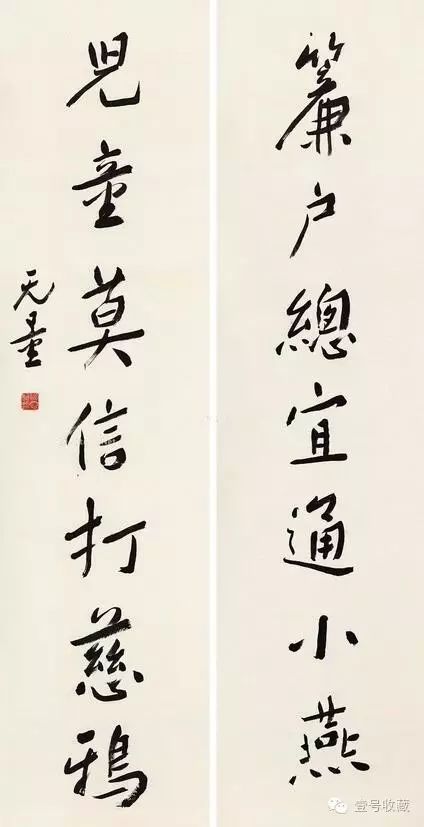 簾户總宜通小燕
兒童莫信打慈鴉
无量
壹号收藏